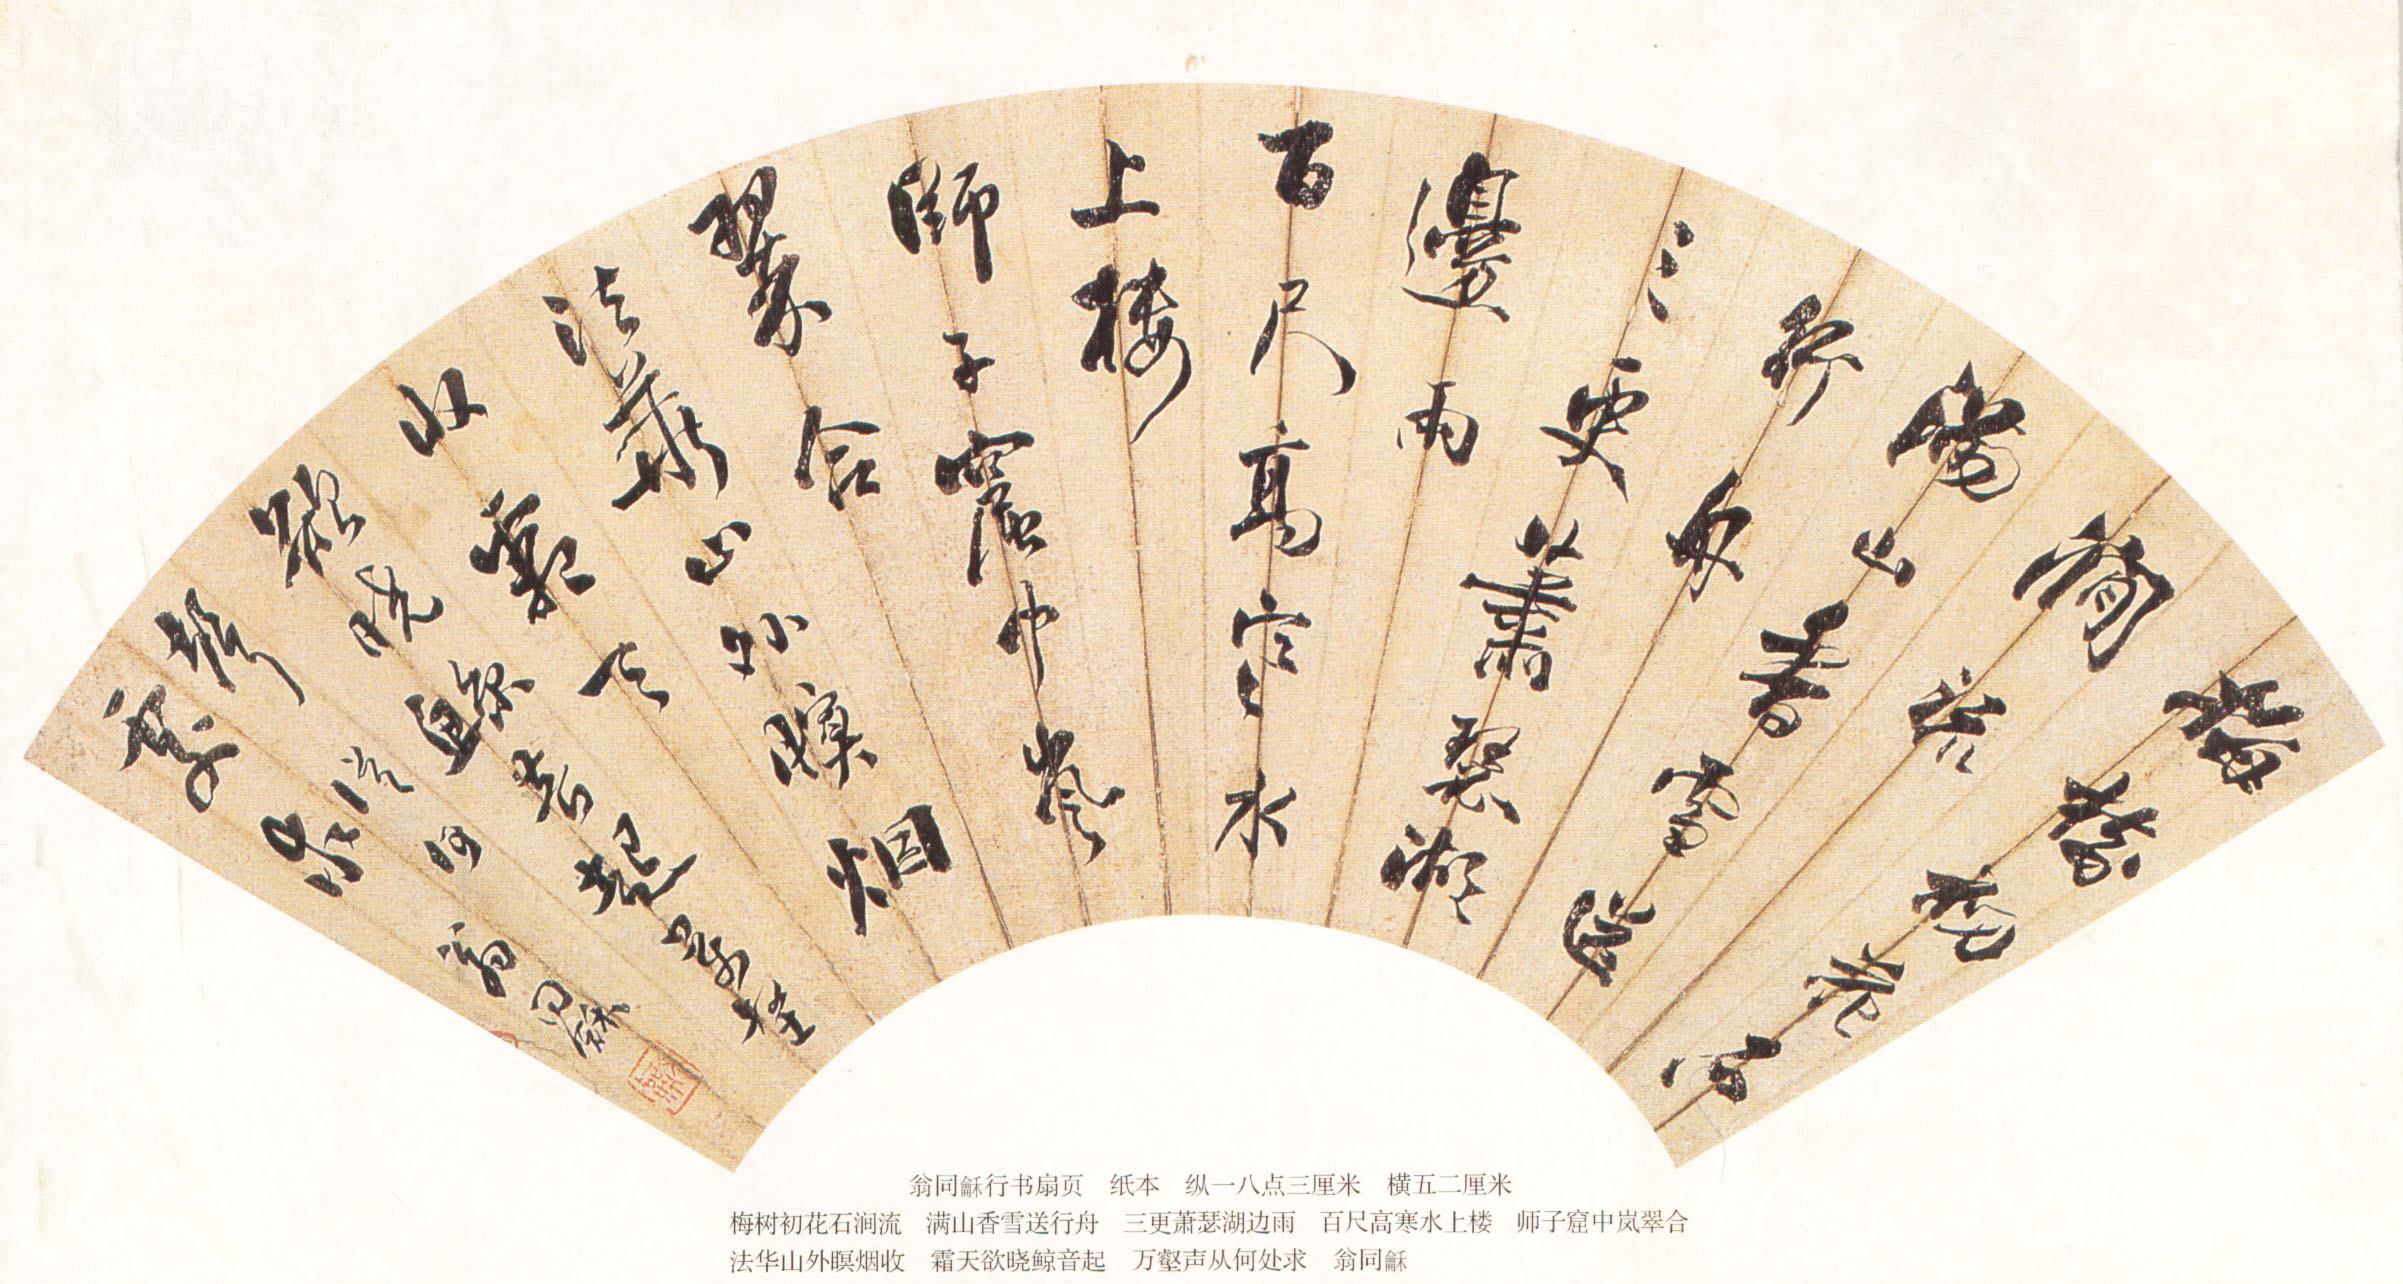 梅樹初花石
澗流
滿山香雪送
行舟
三更蕭瑟湖
邊雨
百尺高寒水
上樓
師子窟中嵐
翠合
法華山外暝烟
收霜天
欲曉鯨音起萬壑
聲從何
處求 翁同龢
翁同龢行书扇页 纸本 纵一八点三厘米 横五二厘米
梅树初花石涧流 满山香雪送行舟 三更萧瑟湖边雨 百尺高寒水上楼 师子窟中岚翠合
法华山外暝烟收 霜天欲晓鲸音起 万壑声从何处求 翁同龢